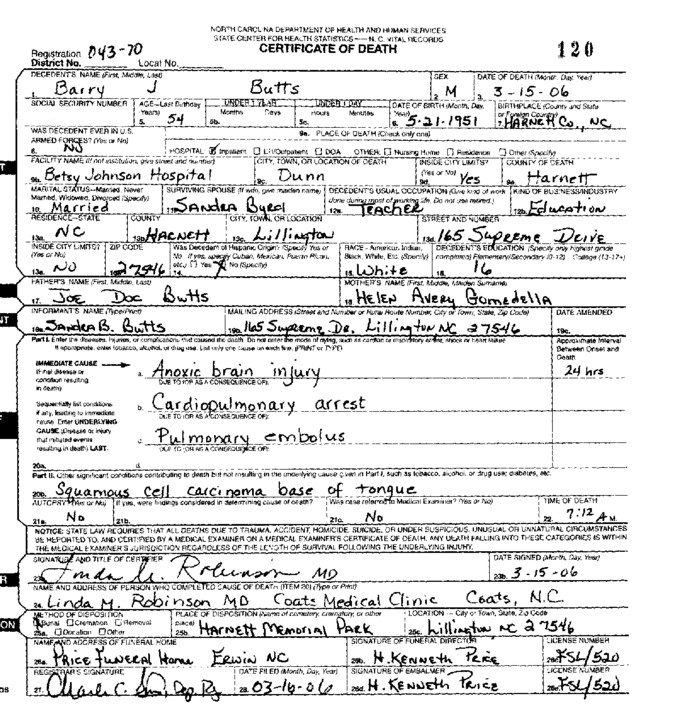 NORTH CAROLINA DEPARTMENT OF HEALTH AND HUMAN SERVICES
STATE CENTER FOR HEALTH STATISTICS — N. C. VITAL RECORDS
CERTIFICATE OF DEATH
Registration District No. 043-70 Local No. 120
DECEDENT'S NAME (First, Middle, Last) SEX DATE OF DEATH (Month, Day, Year)
1. Barry J Butts 2. M 3. 3-15-06
SOCIAL SECURITY NUMBER AGE—Last Birthday (Years) UNDER 1 YEAR Months Days UNDER 1 DAY Hours Minutes DATE OF BIRTH (Month, Day, Year) BIRTHPLACE (County and State or Foreign Country)
5. 54 5b. 5c. 6. 5-21-1951 7. HARNETT CO., NC
WAS DECEDENT EVER IN U.S. ARMED FORCES? (Yes or No) 9a. PLACE OF DEATH (Check only one)
8. NO HOSPITAL Inpatient ER/Outpatient DOA OTHER Nursing Home Residence Other (Specify)
FACILITY NAME (If not institution, give street and number) CITY, TOWN, OR LOCATION OF DEATH INSIDE CITY LIMITS? (Yes or No) COUNTY OF DEATH
9b. Betsy Johnson Hospital 9c. Dunn 9d. Yes 9e. Harnett
MARITAL STATUS—Married, Never Married, Widowed, Divorced (Specify) SURVIVING SPOUSE (If wife, give maiden name) DECEDENT'S USUAL OCCUPATION (Give kind of work done during most of working life. Do not use retired.) KIND OF BUSINESS/INDUSTRY
10. Married 11. SANDRA Byrd 12a. Teacher 12b. Education
RESIDENCE—STATE COUNTY CITY, TOWN, OR LOCATION STREET AND NUMBER
13a. NC 13b. HARNETT 13c. Lillington 13d. 165 Supreme Drive
INSIDE CITY LIMITS? (Yes or No) ZIP CODE Was Decedent of Hispanic Origin? (Specify Yes or No - If yes, specify Cuban, Mexican, Puerto Rican, etc.) Yes No (Specify) RACE - American Indian, Black, White, Etc. (Specify) DECEDENT'S EDUCATION (Specify only highest grade completed) Elementary/Secondary (0-12) College (13-17+)
13e. NO 27546 14. 15. White 16. 16
FATHER'S NAME (First, Middle, Last) MOTHER'S NAME (First, Middle, Maiden Surname)
17. JOE Doc Butts 18. HELEN Avery Gomedella
INFORMANT'S NAME (Type/Print) MAILING ADDRESS (Street and Number or Rural Route Number, City or Town, State, Zip Code) DATE AMENDED
19a. SANDRA B. Butts 19b. 165 Supreme Dr. Lillington NC 27546 19c.
Part I. Enter the diseases, injuries, or complications that caused the death. Do not enter the mode of dying, such as cardiac or respiratory arrest, shock or heart failure. Approximate Interval
If appropriate, enter tobacco, alcohol, or drug use. List only one cause on each line. (PRINT or TYPE) Between Onset and Death
IMMEDIATE CAUSE a. Anoxic brain injury 24 hrs
(Final disease or condition resulting in death) DUE TO (OR AS A CONSEQUENCE OF):
Sequentially list conditions b. Cardiopulmonary arrest
if any, leading to immediate cause. Enter UNDERLYING DUE TO (OR AS A CONSEQUENCE OF):
CAUSE (Disease or injury that initiated events c. Pulmonary embolus
resulting in death) LAST. DUE TO (OR AS A CONSEQUENCE OF):
20a. d.
Part II. Other significant conditions contributing to death but not resulting in the underlying cause given in Part I, such as tobacco, alcohol, or drug use; diabetes, etc.
20b. Squamous cell carcinoma base of tongue
AUTOPSY? (Yes or No) If yes, were findings considered in determining cause of death? Was case referred to Medical Examiner? (Yes or No) TIME OF DEATH
21a. No 21b. 21c. No 22. 7:12 A M
NOTICE: STATE LAW REQUIRES THAT ALL DEATHS DUE TO TRAUMA, ACCIDENT, HOMICIDE, SUICIDE, OR UNDER SUSPICIOUS, UNUSUAL OR UNNATURAL CIRCUMSTANCES
BE REPORTED TO, AND CERTIFIED BY A MEDICAL EXAMINER ON A MEDICAL EXAMINER'S CERTIFICATE OF DEATH. ANY DEATH FALLING INTO THESE CATEGORIES IS WITHIN
THE MEDICAL EXAMINER'S JURISDICTION REGARDLESS OF THE LENGTH OF SURVIVAL FOLLOWING THE UNDERLYING INJURY.
SIGNATURE AND TITLE OF CERTIFIER DATE SIGNED (Month, Day, Year)
23a. Linda M. Robinson MD 23b. 3-15-06
NAME AND ADDRESS OF PERSON WHO COMPLETED CAUSE OF DEATH (ITEM 20) (Type or Print)
24. Linda M. Robinson MD Coats Medical Clinic Coats, N.C.
METHOD OF DISPOSITION PLACE OF DISPOSITION (Name of cemetery, crematory, or other place) LOCATION — City or Town, State, Zip Code
Burial Cremation Removal
25a. Donation Other 25b. HARNETT MEMORIAL PARK 25c. Lillington NC 27546
NAME AND ADDRESS OF FUNERAL HOME SIGNATURE OF FUNERAL DIRECTOR LICENSE NUMBER
26a. PRICE FUNERAL HOME ERWIN NC 26b. H. KENNETH PRICE 26c. FSL/520
REGISTRAR'S SIGNATURE DATE FILED (Month, Day, Year) SIGNATURE OF EMBALMER LICENSE NUMBER
27. Dep. Rg 28. 03-16-06 26d. H. KENNETH PRICE FSL/520